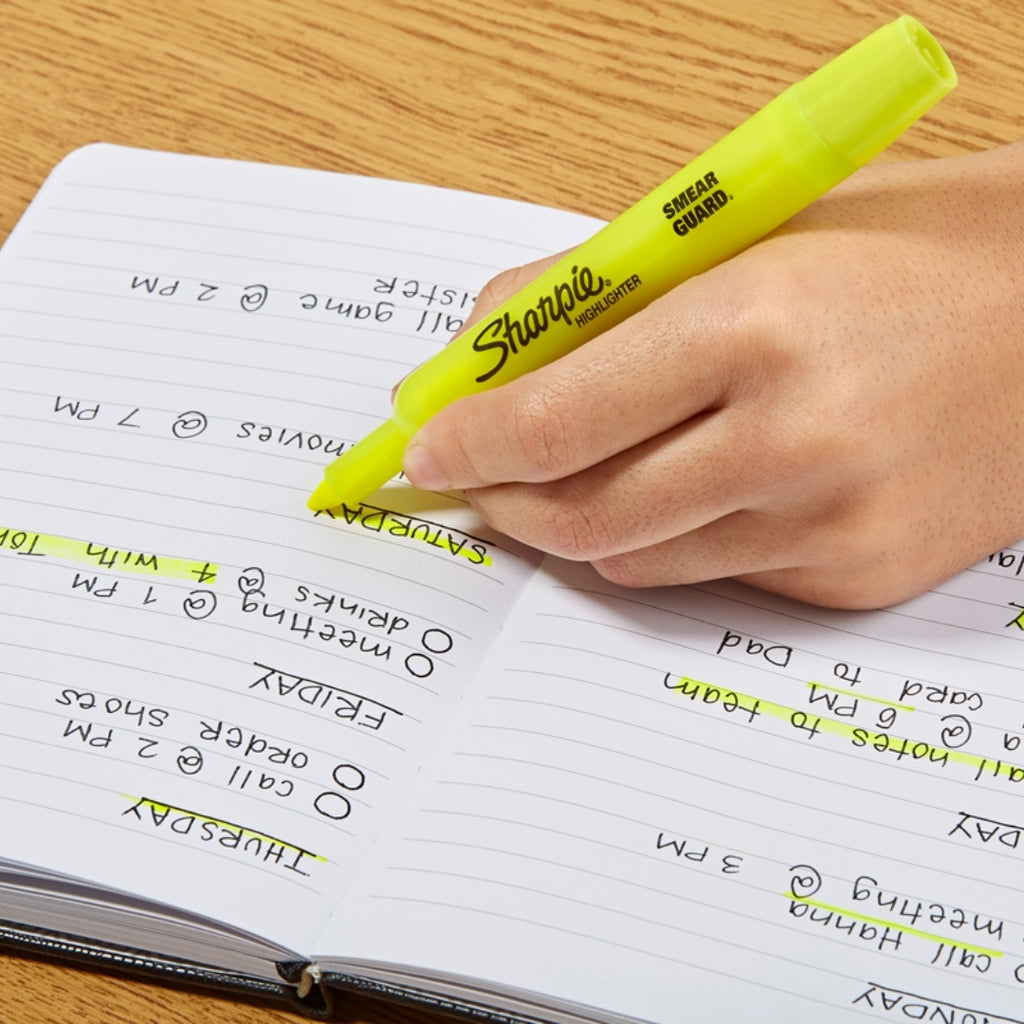 Sharpie®
HIGHLIGHTER
SMEAR
GUARD®
call Hanna
meeting @ 3 PM
notes to team
@ 6 PM
card to Dad
THURSDAY
call @ 2 PM
order shoes
FRIDAY
meeting @ 1 PM
drinks @ 4 with
SATURDAY
movies @ 7 PM
game @ 2 PM
sister